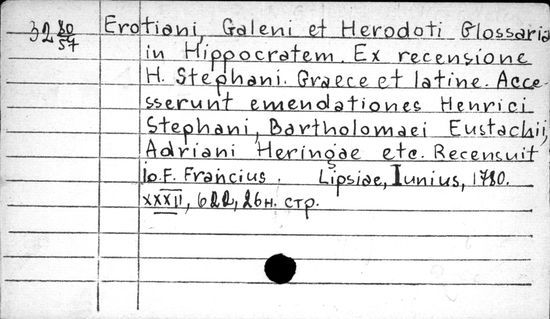 32 80/57 Erotiani, Galeni et Herodoti Glossaria
in Hippocratem. Ex recensione
H. Stephani. Graece et latine. Acce-
sserunt emendationes Henrici
Stephani, Bartholomaei Eustachii,
Adriani Heringae etc. Recensuit
Io. F. Francius. Lipsiae, Iunius, 1780.
XXXII, 622, 26 н. стр.